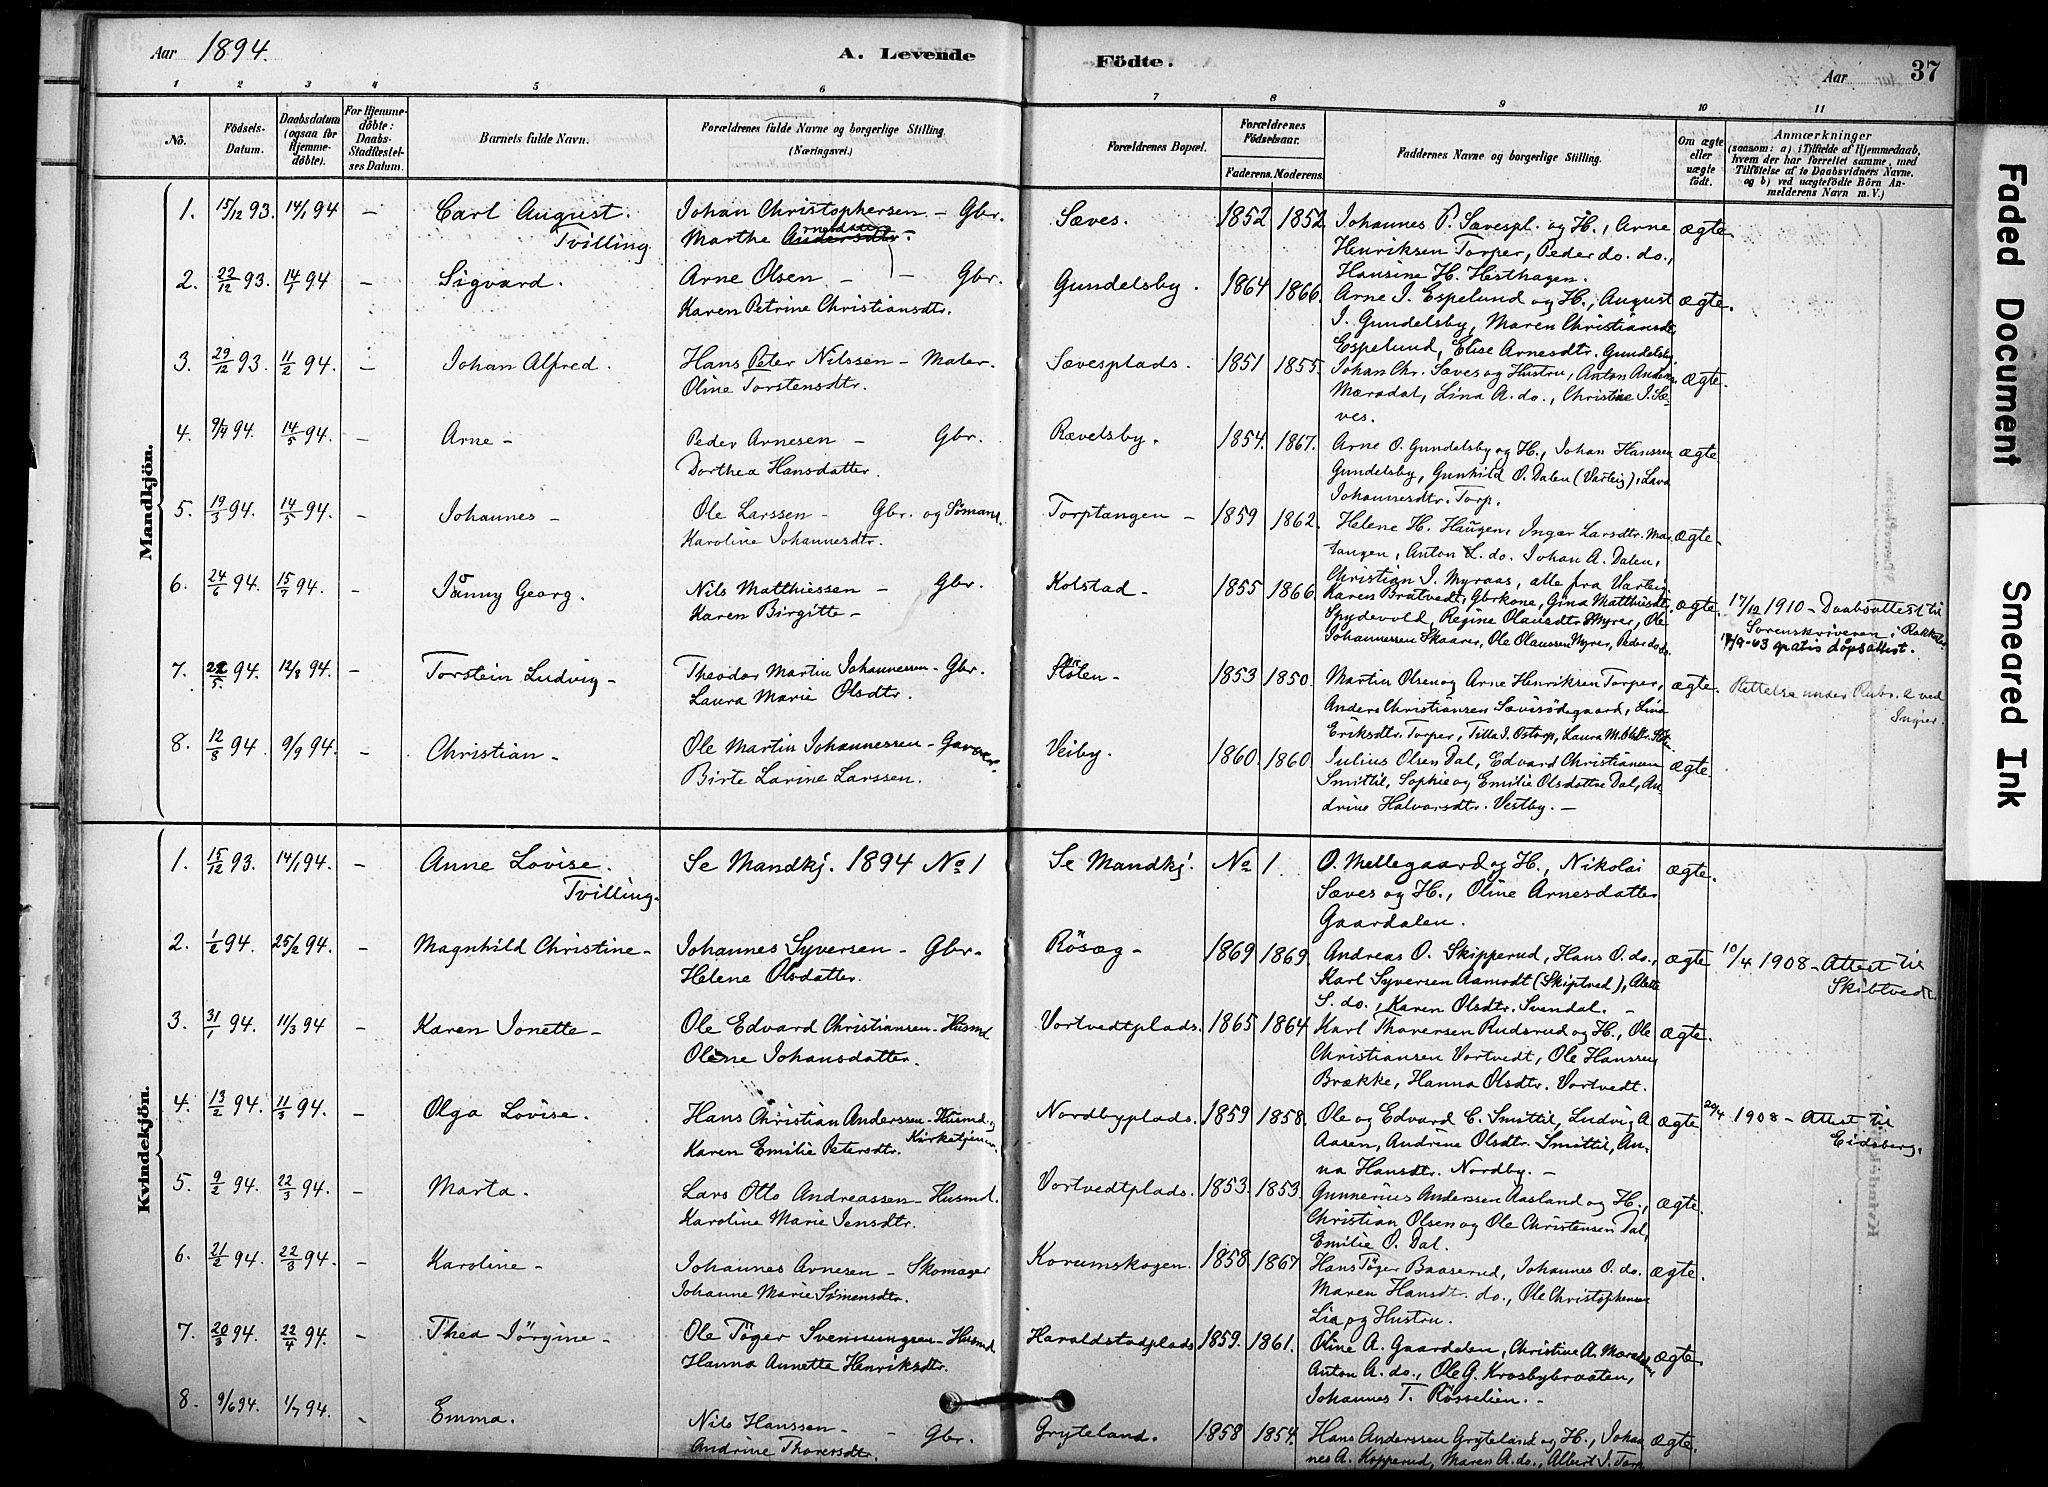 Aar 1894. A. Levende Fødte. Aar 37
1 2 3 4 5 6 7 8 9 10 11
No. Födsels-Datum. Daabsdatum (ogsaa for Hjemmedöbte). For Hjemmedöbte: Daabs-Stadfæstelses Datum. Barnets fulde Navn. Forældrenes fulde Navne og borgerlige Stilling. (Næringsvei.) Forældrenes Bopæl. Forældrenes Födselsaar. Faderens. Moderens. Faddernes Navne og borgerlige Stilling. Om ægte eller uægte födt. Anmærkninger (saasom: a) i Tilfælde af Hjemmedaab, hvem der har forrettet samme, med Tilföielse af to Daabsvidners Navne. og b) ved uægtefödte Börn Anmelderens Navn m. V.)
Mandkjön.
1. 15/12 93. 14/1 94 – Carl August. Johan Christophersen – Gbr. Sæves. 1852 1852. Johannes P. Sævespl. og H., Arne ægte.
Tvilling Marthe Henriksen Torper, Peder do. do.,
Hansine H. Hesthagen.
2. 22/12 93. 14/1 94 – Sigvard. Arne Olsen – Gbr. Gundelsby. 1864 1866. Arne I. Espelund og H., August ægte.
Karen Petrine Christiansdtr. I. Gundelsby, Maren Christiansdtr.
Espelund, Elise Arnesdtr. Gundelsby.
3. 29/12 93. 11/2 94. – Johan Alfred. Hans Peter Nilssen – Maler. Sævesplads. 1851 1855. Johan Chr. Sæves og Hustru, Anton Anders. ægte.
Oline Torstensdtr. Mæradal, Lina A. do., Christine I. Sæ-
ves.
4. 9/4 94. 14/5 94. – Arne – Peder Arnesen – Gbr. Rævelsby. 1854. 1867. Arne O. Gundelsby og H., Johan Hanssen ægte
Dorthea Hansdatter. Gundelsby, Gunhild O. Dalen (Varteig), Lava
Johannesdtr. Torp.
5. 19/3 94. 14/5 94. – Johannes – Ole Larssen – Gbr. og Sømand. Torptangen – 1859 1862. Helene H. Haugen, Inger Larsdtr. Mar- ægte.
Karoline Johannesdtr. tangen, Anton L. do. Johan A. Dalen,
Christian I. Myraas, alle fra Varteig
6. 24/6 94. 15/7 94. – Georg. Nils Matthiessen – Gbr. Kolstad – 1855 1866. Karen Bratvedt, Gbrkone, Gina Matthisdtr. ægte. 17/12 1910 – Daabsattest til
Karen Birgitte – Spydevold, Regine Olausdtr. Myrer, Ole Sorenskriveren i Rakkestad
Johannessen Skaarer, Ole Olaussen Myrer, Peder do do. gratis dåpsattest.
7. 94. 12/8 94. – Torstein Ludvig – Theodor Martin Johannessen – Gbr. Stølen – 1853 1850. Martin Olsen og Arne Henriksen Torper, ægte. Rettelse under Rubr. 2 ved
Laura Marie Olsdtr. Anders Christiansen Sævisødegaard, Lina Ingier.
Eriksdtr. Torper, Tilla I. Ostorp, Laura M. Olsdtr.
8. 12/8 94. 9/9 94. – Christian – Ole Martin Johannessen – Garver. Veiby. 1860. 1860. Julius Olsen Dal, Edvard Christiansen ægte.
Birte Larine Larssen. Smittil, Sophie og Emilie Olsdøttre Dal, An-
drine Halvorsdtr. Vestby. –
Kvindekjön.
1. 15/12 93. 14/1 94. – Anne Lovise. Se Mandkj. 1894 No 1 Se Mandkj. No 1. O. Mellegaard og H., Nikolai ægte.
Tvilling. Sæves og H., Oline Arnesdatter
Gaardalen.
2. 1/2 94. 25/2 94. – Magnhild Christine – Johannes Syversen – Gbr. Røsæg – 1869 1869. Andreas O. Skipperud, Hans O. do., ægte 10/4 1908 – Attest til
Helene Olsdatter. Karl Syversen Aamodt (Skiptved), Alette Skibtvedt.
S. do., Karen Olsdtr. Svendal. –
3. 31/1 94. 11/3 94 – Karen Jonette – Ole Edvard Christiansen – Husmd Vortvedtplads. 1865 1864 Karl Thoversen Rudsrud og H., Ole ægte.
Oline Johansdatter. Christiansen Vortvedt, Ole Hanssen
Brække, Hanna Olsdtr. Vortvedt.
4. 13/2 94. 11/3 94. – Olga Lovise. Hans Christian Anderssen – Husmd. Nordbyplads. 1859 1858. Ole og Edvard C. Smittil, Ludvig A ægte 20/4 1908 – Attest til
Karen Emilie Petersdtr. Kirketjener. Aasen, Andrine Olsdtr. Smittil, An- Eidsberg.
na Hansdtr. Nordby. –
5. 9/2 94. 22/3 94. – Marta. Lars Otto Andreassen – Husmd. Vortvedtplads. 1853. 1853. Gunnerius Anderssen Aasland og H., ægte.
Karoline Marie Jensdtr. Christian Olsen og Ole Christensen Dal,
Emilie O. Dal.
6. 21/2 94. 22/3 94. – Karoline – Johannes Arnesen – Skomager Korumskogen. 1858. 1867. Hans Töger Baaserud, Johannes O. do. ægte.
Johanne Marie Simensdtr. Maren Hansdtr. do., Ole Christophersen
Lia og Hustru.
7. 20/3 94. 22/4 94. – Thea Jörgine – Ole Töger Svenningsen – Husmd. Haraldstadplads 1859. 1861. Oline A. Gaardalen, Christine A. ægte.
Hanna Annette Henriksdtr. Anton A. do., Ole G. Krosbybraaten,
Johannes T. Røsselien. –
8. 9/6 94. 1/7 94. – Emma. Nils Hanssen – Gbr. Gryteland. 1858 1854. Hans Anderssen Gryteland og H., Johan- ægte.
Andrine Thoresdtr. nes A. Kopperud, Maren A. do., Albert I. Torp
Faded Document
Smeared Ink